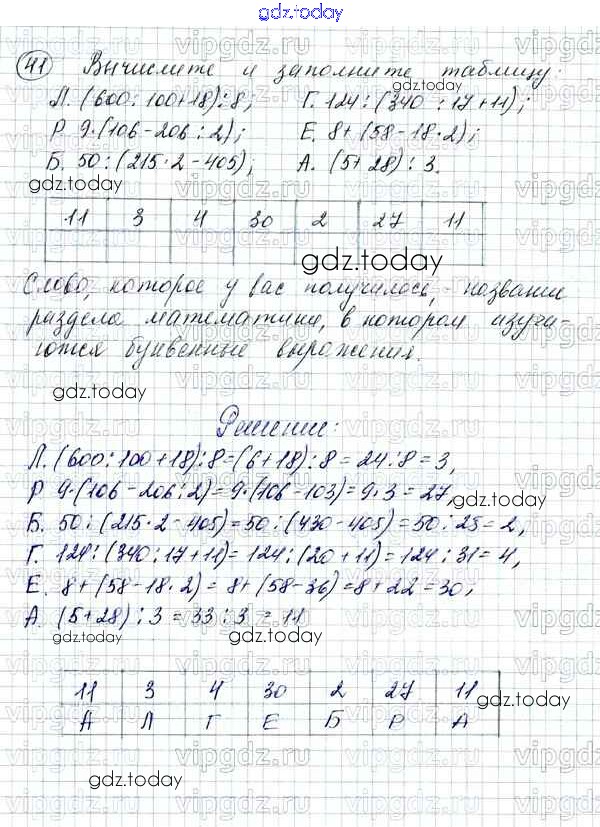 gdz.today
41 Вычислите и заполните таблицу:
Л. (600:100+18):8; Г. 124:(340:17+11);
Р 9·(106-206:2); Е. 8+(58-18·2);
Б. 50:(215·2-405); А. (5+28):3.
11 3 4 30 2 27 11
Слово, которое у вас получилось, - название
раздела математики, в котором изуча-
ются буквенные выражения.
Решение:
Л. (600:100+18):8=(6+18):8=24:8=3,
Р 9·(106-206:2)=9·(106-103)=9·3=27,
Б. 50:(215·2-405)=50:(430-405)=50:25=2,
Г. 124:(340:17+11)=124:(20+11)=124:31=4,
Е. 8+(58-18·2)=8+(58-36)=8+22=30;
А. (5+28):3=33:3=11
11 3 4 30 2 27 11
А Л Г Е Б Р А
gdz.today